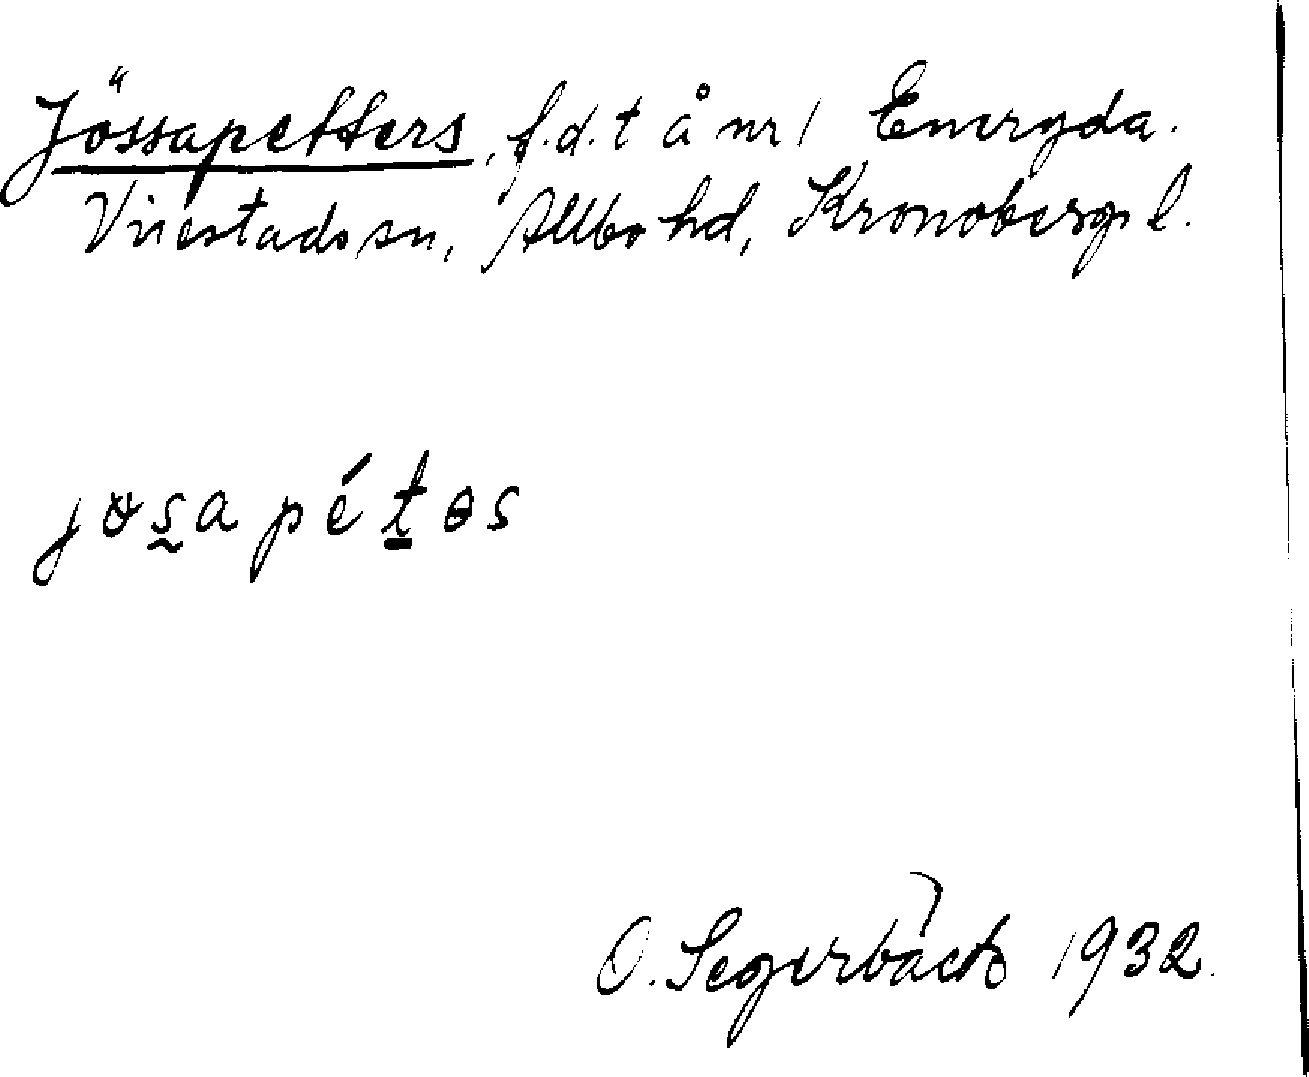 Jössapetters, f.d. t å nr 1 Emeryda.
Virestads sn, Allbo hd, Kronobergs l.
jɵsapétɵs
O. Segerbäck 1932.